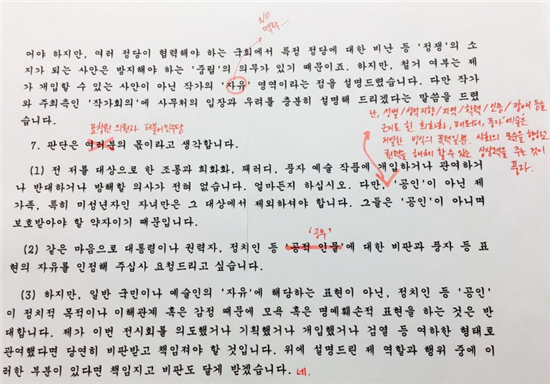 NO
맥락...
어야 하지만, 여러 정당이 협력해야 하는 국회에서 특정 정당에 대한 비난 등 '정쟁'의 소
지가 되는 사안은 방지해야 하는 '중립'의 의무가 있기 때문이죠. 하지만, 철거 여부는 제
가 개입할 수 있는 사안이 아닌 작가의 '자유' 영역이라는 점을 설득했습니다. 다만 작가
와 주최측인 '작가회의'에 사무처의 입장과 우려를 충분히 설명해 드리겠다는 말씀을 드렸
습니다.
표창원 의원과 더불어민주당
7. 판단은 여러분의 몫이라고 생각합니다.
단, 성별/성적지향/지역/학력/인종/장애 등을
근거로 한 희화화, 패러디, 풍자 예술은
저열한 방식의 폭력일뿐. 사회의 모순을 행하고
권력을 해체할 수 있는 상상력을 주는 것이
풍자.
(1) 전 저를 대상으로 한 조롱과 희화화, 패러디, 풍자 예술 작품에 개입하거나 관여하거
나 반대하거나 방해할 의사가 전혀 없습니다. 얼마든지 하십시오. 다만, '공인'이 아닌 제
가족, 특히 미성년자인 자녀만은 그 대상에서 제외하셔야 합니다. 그들은 '공인'이 아니며
보호받아야 할 약자이기 때문입니다.
"공무"
(2) 같은 마음으로 대통령이나 권력자, 정치인 등 '공적 인물'에 대한 비판과 풍자 등 표
현의 자유를 인정해 주십사 요청드리고 싶습니다.
(3) 하지만, 일반 국민이나 예술인의 '자유'에 해당하는 표현이 아닌, 정치인 등 '공인'
이 정치적 목적이나 이해관계 혹은 감정 때문에 모욕 혹은 명예훼손적 표현을 하는 것은 반
대합니다. 제가 이번 전시회를 의도했거나 기획했거나 개입했거나 검열 등 여하한 형태로
관여했다면 당연히 비판받고 책임져야 할 것입니다. 위에 설명드린 제 역할과 행위 중에 이
러한 부분이 있다면 책임지고 비판도 달게 받겠습니다. 네.